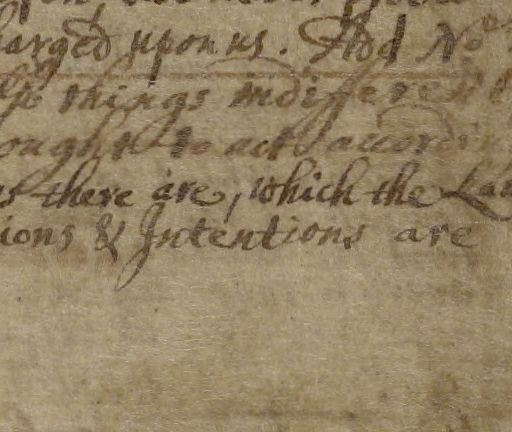 harged upon us. Add No
things indifferent
ought to act accordin
as there are, which the Law
ions & Intentions are